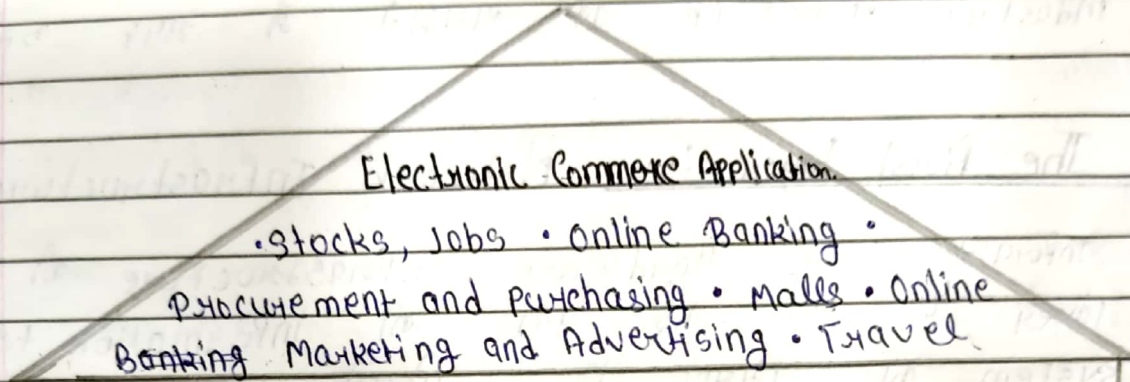 Electronic Commerce Application.
• Stocks, Jobs • Online Banking •
Procurement and purchasing • Malls • Online
Marketing and Advertising • Travel.